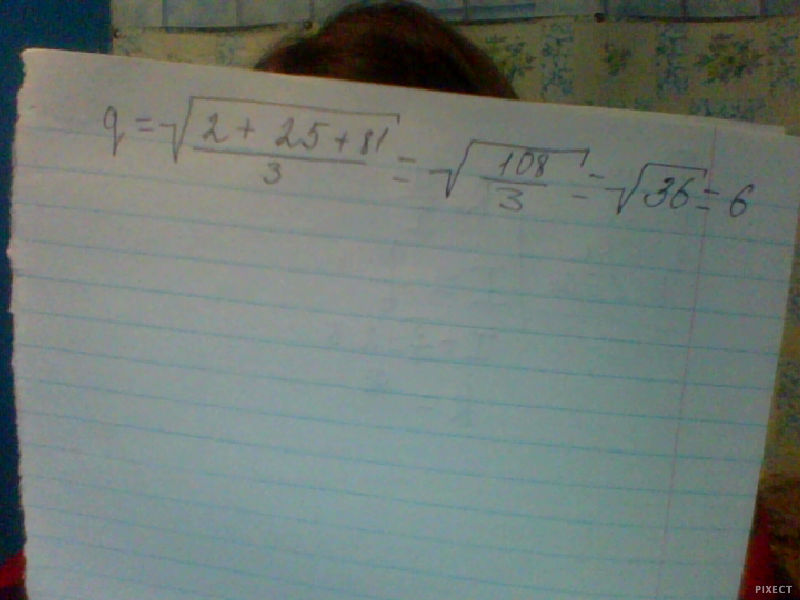 q = √(2 + 25 + 81 / 3) = √(108 / 3) = √36 = 6
PIXECT